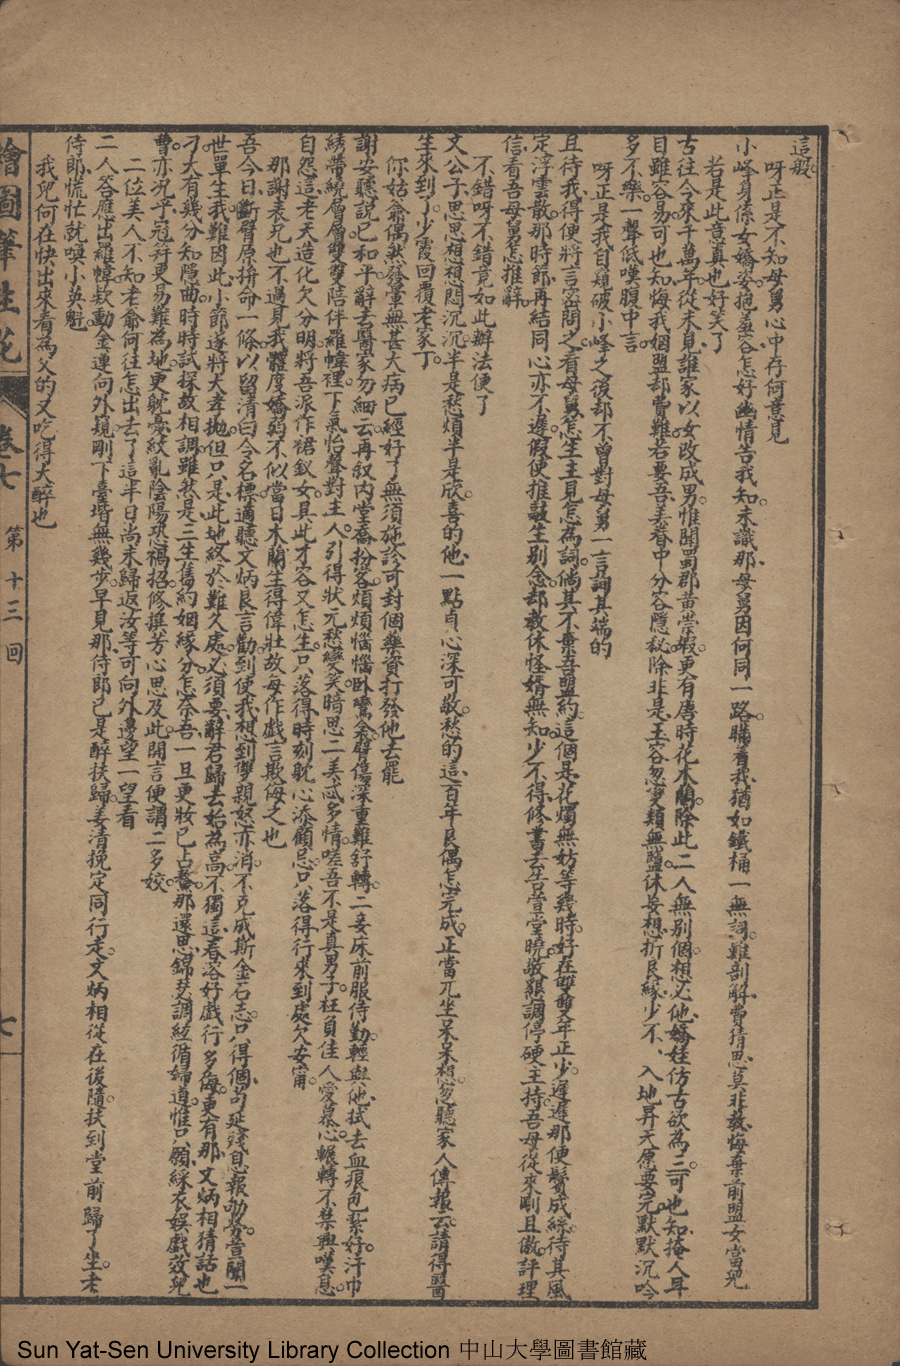 這般。
呀正是不知母舅心中存何意見
小峰身係女嬌姿。抱羞容怎好幽情告我知。未識那母舅因何同一路。瞞着我猶如鐵桶一無詞。難剖解費猜思。莫非教悔棄前盟女當兒
若是此意真也好笑了
古往今來千萬年。從未見誰家以女改成男。惟聞蜀郡黃崇嘏。更有唐時花木蘭。除此二人無別個。想必他嬌娃仿古欲為三。可也知掩人耳
目雖容易。可也知悔我姻盟却費難。若要吾美眷中分容隱秘。除非是玉容忽變類無鹽。休妄想折良緣。少不入地昇天原要完。默默沉吟
多不樂。一聲低嘆腹中言。
呀正是我自窺破小峰之後却不曾對母舅一言詞其端的
且待我得便將言密問之。看母舅怎生主見怎為詞。倘其不棄吾盟約。這個是花燭無妨等幾時。好在雙雙年正少。遲遲那便鬢成絲。待其風
定浮雲散。那時節再結同心亦不遲。假使推敲生別念。却教休怪婿無知。少不得修書去告萱堂曉。敬懇調停硬主持。吾母從來剛且傲。評理
信看吾母舅怎推辭。
不錯呀不錯竟如此辦法便了
文公子思思想想悶沉沉。半是愁煩半是欣。喜的他一點貞心深可敬。愁的這百年良偶怎完成。正當兀坐呆呆想。忽聽家人傳報云。請得醫
生來到了。少霞回覆老家丁。
你姑爺偶然發暈無甚大病已經好了無須施診可封個藥資打發他去罷
謝安聽說已和平。辭去醫家勿細云。再叙內堂喬扮客。煩煩惱惱臥鴛衾。臂傷深重難舒轉。二妾床前服侍勤。輕與他拭去血痕包紮好。汗巾
綉帶繞層層。雙雙陪伴羅幃裡。下氣怡聲對主人。引得狀元愁變笑。暗思二美忒多情。嗟吾不是真男子。枉負佳人愛慕心。輾轉不禁興嘆息。
自怨這老天造化欠分明。將吾派作裙釵女。具此才容又怎生。只落得時刻躭心添顧忌。只落得行來到處欠安甯。
那謝表兄也不過見我體度嬌弱不似當日木蘭生得偉壯故每作戲言欺侮之也
吾今日斷臂原拚命一條。以留清白今名標。適聽文炳良言勸。到使我想到雙親怒亦消。不克成斯金石志。只得個苟延殘息報劬勞。萱闈一
世單生我。難因此小節遂將大孝拋。但只是此地終於難久處。必須要辭君歸去始為高。不獨這春溶好戲行多侮。更有那文炳相猜話也
刁。大有幾分知隱曲。時時試探故相調。雖然是三生舊約姻緣分。怎奈吾一旦更妝已占鰲。那還思錦瑟調絃循婦道。惟只願綵衣娛戲效兒
曹。亦况乎冠笄更易難為地。更躭憂紋亂陰陽恐禍招。修撰芳心思及此。開言便謂二多姣。
二位美人不知老爺何往怎出去了這半日尚未歸返汝等可向外邊望一望看
二人答應出羅幃。欵動金蓮向外窺。剛下臺堦無幾步。早見那侍郎已是醉扶歸。姜清挽定同行走。文炳相從在後隨。扶到堂前歸了坐。老
侍郎慌忙就嘆小英魁。
我兒何在快出來看為父的又吃得大醉也
繪圖筆生花
卷七
第十三回
七
Sun Yat-Sen University Library Collection 中山大學圖書館藏